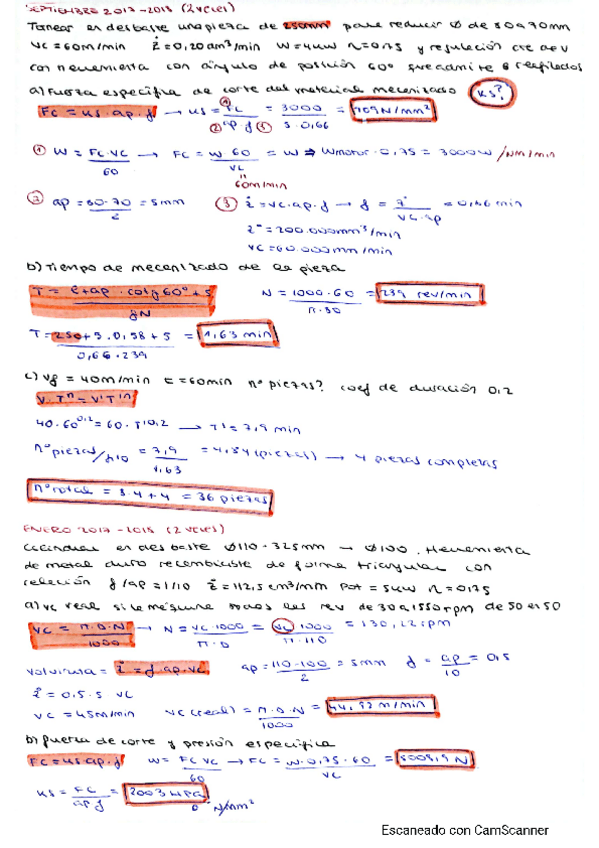 SEPTIEMBRE 2017-2018 (2 veces)
Tornear en desbaste una pieza de 250mm para reducir Ø de 80 a 70mm
Vc = 60m/min Ż = 0,20 dm³/min W = 4kW η = 0.75 y regulación de aev
con herramienta con ángulo de posición 60° que admite 8 reafilados
a) Fuerza específica de corte del material mecanizado ks?
Fc = ks · ap · f → ks = Fc / ap f = 3000 / 5 · 0,66 = 909 N/mm²
① W = Fc · Vc / 60 → Fc = W · 60 / Vc = W ⇒ Wmotor · 0,75 = 3000 W /
60m/min
② ap = 80-70 / 2 = 5mm ③ Ż = Vc · ap · f → f = Ż / Vc · ap = 0,66 min
Ż = 200.000 mm³/min
Vc = 60.000 mm/min
b) Tiempo de mecanizado de la pieza
T = l + ap · cotg 60° + 5 / f N N = 1000 · 60 / π · 80 = 239 rev/min
T = 250 + 5 · 0,58 + 5 / 0,66 · 239 = 1,63 min
c) Vf = 40m/min t = 60min nº piezas? coef de duración 0,2
V · Tⁿ = V' T'ⁿ
40 · 60^0,2 = 60 · T'^0,2 → T' = 7,9 min
nº piezas/filo = 7,9 / 1,63 = 4,84 (piezas) → 4 piezas completas
nº total = 8 · 4 + 4 = 36 piezas
ENERO 2017-2018 (2 veces)
Cilindrar en desbaste Ø110 · 325mm → Ø100. Herramienta
de metal duro recambiable de forma triangular con
relación f/ap = 1/10 Ż = 112,5 cm³/min Pot = 5kW η = 0,75
a) Vc real si la máquina todas las rev de 30 a 1550 rpm de 50 en 50
Vc = π · D · N / 1000 → N = Vc · 1000 / π · D = Vc · 1000 / π · 110 = 130,2 rpm
Volviruta = Ż = f · ap · Vc ap = 110-100 / 2 = 5mm f = ap / 10 = 0,5
Ż = 0,5 · 5 Vc
Vc = 45m/min Vc (real) = π · D · N / 1000 = 44,92 m/min
b) fuerza de corte y presión específica
Fc = ks · ap · f W = Fc Vc / 60 → Fc = W · 0,75 · 60 / Vc = 5008,9 N
ks = Fc / ap f = 2003 MPa
o N/mm²
Escaneado con CamScanner